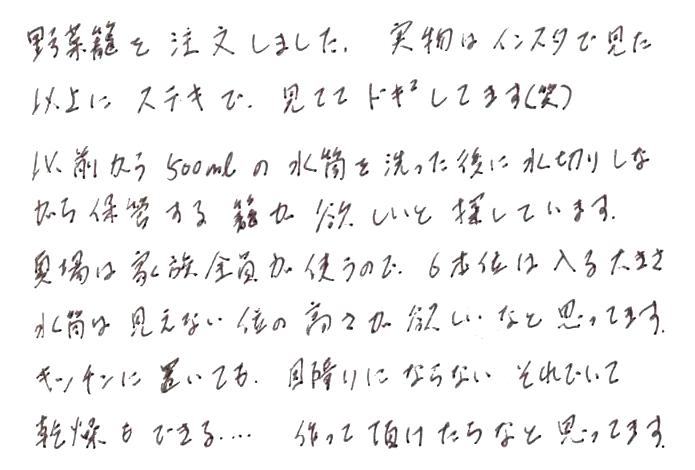 野菜籠を注文しました。実物はインスタで見た
以上にステキで、見ててドキ²してます(笑)
以前から500mlの水筒を洗った後に水切りしな
がら保管する籠が欲しいと探しています。
夏場は家族全員が使うので、6本位は入る大きさ
水筒は見えない位の高さが欲しいなと思ってます。
キッチンに置いても、目障りにならない それでいて
乾燥もできる…. 作って頂けたらなと思ってます。